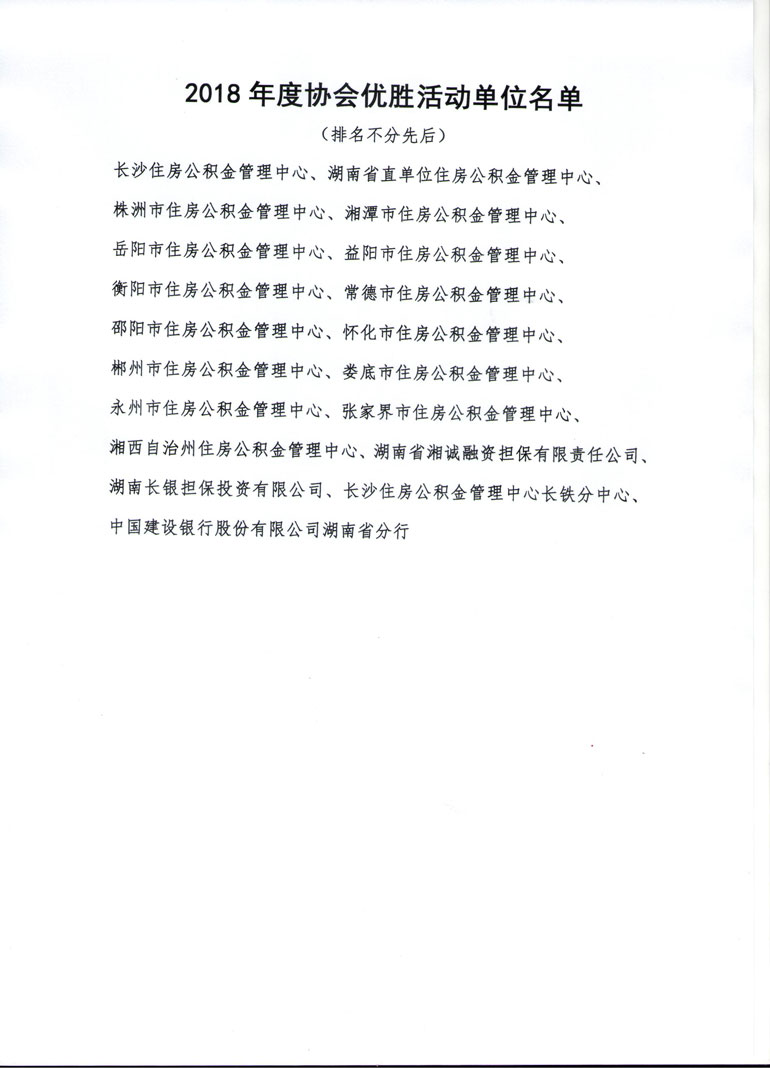 2018年度协会优胜活动单位名单
（排名不分先后）
长沙住房公积金管理中心、湖南省直单位住房公积金管理中心、
株洲市住房公积金管理中心、湘潭市住房公积金管理中心、
岳阳市住房公积金管理中心、益阳市住房公积金管理中心、
衡阳市住房公积金管理中心、常德市住房公积金管理中心、
邵阳市住房公积金管理中心、怀化市住房公积金管理中心、
郴州市住房公积金管理中心、娄底市住房公积金管理中心、
永州市住房公积金管理中心、张家界市住房公积金管理中心、
湘西自治州住房公积金管理中心、湖南省湘诚融资担保有限责任公司、
湖南长银担保投资有限公司、长沙住房公积金管理中心长铁分中心、
中国建设银行股份有限公司湖南省分行